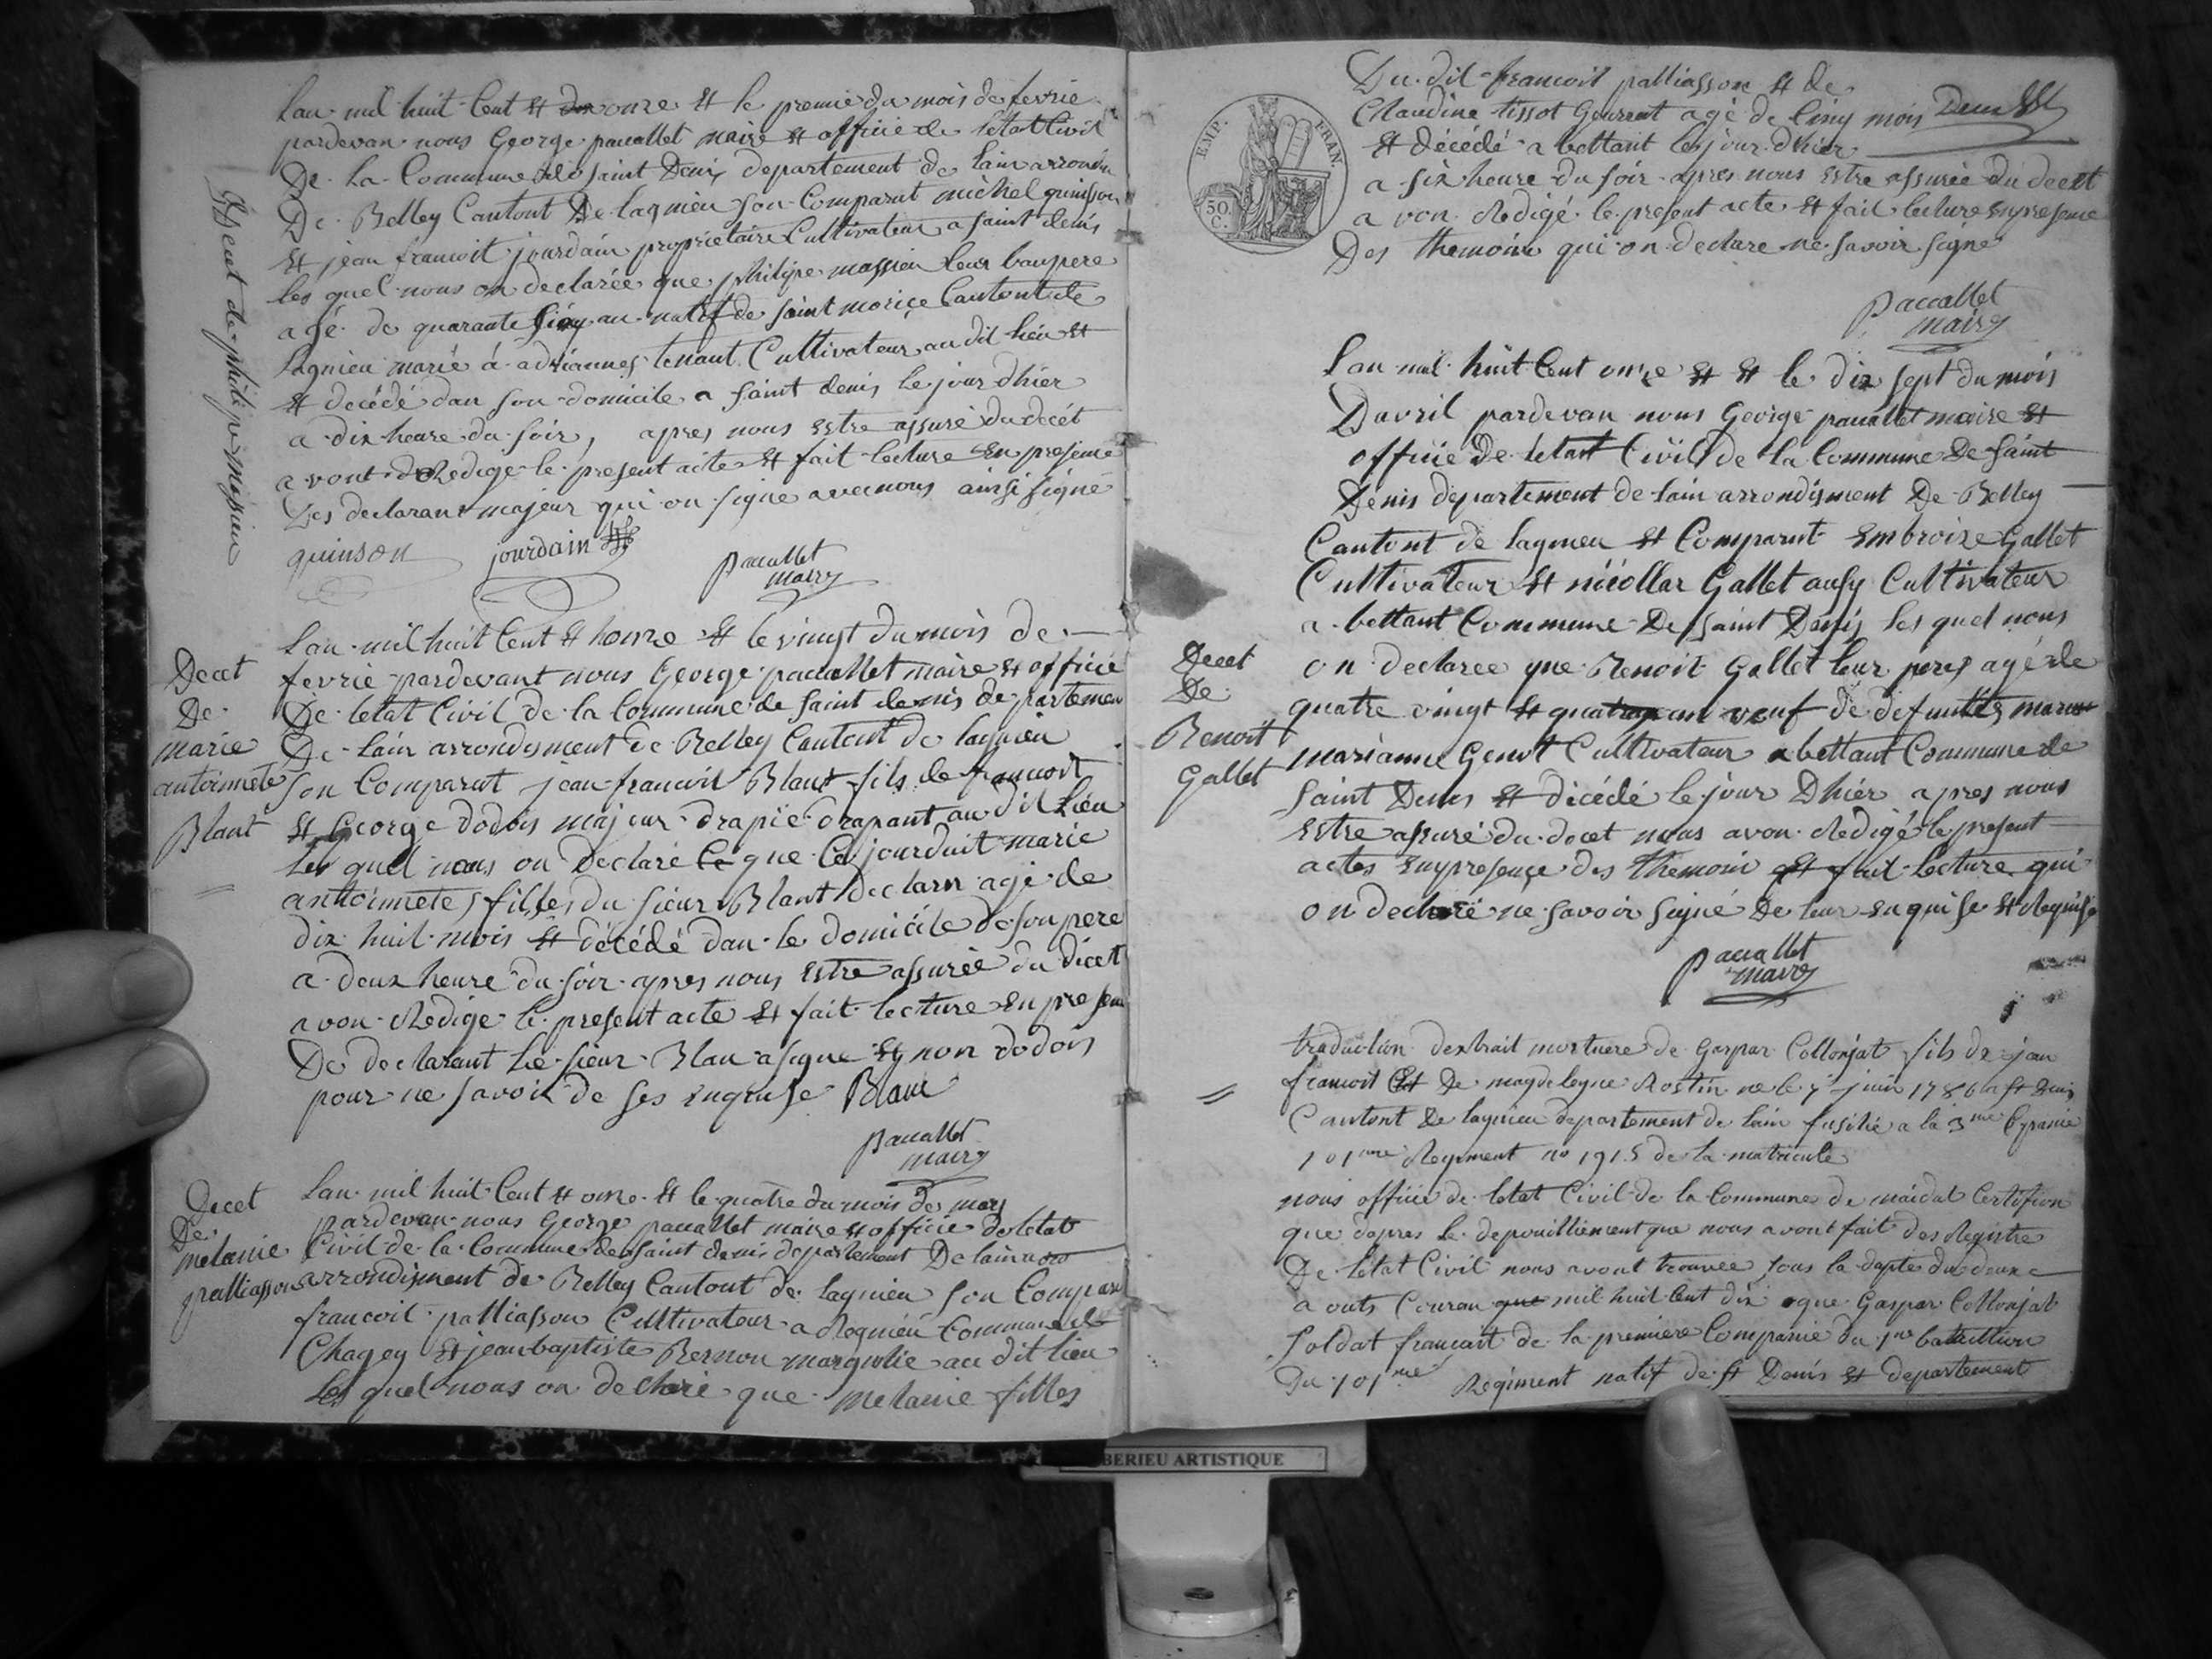 Décet de philipe messieu
Lan mil huit Cent et onze et le premie du mois de fevrie
pardevan nous George pacallet maire et officié de letat Civil
De la Commune de saint Denis departement de lain arrondi
De Belley Cantont De lagnieu son Comparut michel quinson
et jean francoit jourdain proprietaire Cultivateur a saint denis
les quel nous on declarée que philipe massieu leur baupere
agé de quarante Cinq an natif de saint morice Cantont de
lagnieu marié á adriannes tenant Cultivateur au dit lieu et
et décédé dan son domicile a saint denis le jour dhier
a dix heure du soir, apres nous estre assuré du decét
avont Redigé le present acte et fait lecture en presence
Des declarant majeur qui on signe avec nous ainsi signé
quinson jourdain pacallet
maire
Decet
De
marie
antoinnete
Blant
Lan mil huit Cent et honze et le vingt du mois de
fevrie pardevant nous George pacallet maire et officié
De letat Civil de la Commune de saint denis departemen
De lain arrondisment de Belley Cantont de lagnieu
son Comparut jean francoit Blant fils de francoit
et George dodois majeur drapié drapant au dit Lieu
les quel nous on declaré que Cejourduit marie
anttoinnete filles du sieur Blant declarn agé de
dix huit mois et décédé dan le domicile de son pere
a deux heure du soir apres nous estre assurée du dicet
avon Redigé le present acte et fait lecture en presen
De declarant le sieur Blan a signe et non dodois
pour ne savoir de ses enquise Blanc
pacallet
maire
Decet
De
melanie
palliasson
Lan mil huit Cent et onze et le quatre du mois de mars
pardevan nous George pacallet maire et officié de letat
Civil de la Commune de saint denis departement De lain
arrondisment de Belley Cantont de lagnieu son Compar
francoit palliasson Cultivateur a Rognieu Commune de
Chagey et jean baptiste Bernon au dit lieu
les quel nous on declaré que melanie filles
Du dit francoit palliasson et de
Claudine tissot Gourent agé de Cinq mois
et décédé a bettant le jour dhier
a six heure du soir apres nous estre assurée du decet
avon Redigé le present acte et fait lecture en presence
Des themoin qui on declare ne savoir signe
EMP. FRAN.
50
C.
pacallet
maire
Decet
De
Benoit
Gallet
Lan mil huit Cent onze et et le dix sept du mois
Davril pardevan nous George pacallet maire et
officié De letat Civil de la Commune De saint
Denis departement de lain arrondisment De Belley
Cantont de lagnieu et Comparut Embroize Gallet
Cultivateur et nicollas Gallet ausy Cultivateur
a bettant Commune De saint Denis les quel nous
on declaree que Benoit Gallet leur peres agé de
quatre vingt et quatre an veuf de defuntes
marianne Genot Cultivateur a bettant Commune de
saint Denis et décédé le jour Dhier apres nous
estre assuré du decet nous avon Redigé le present
actes en presençe des themoin et fait lecture qui
on declaré ne savoir signé De leur enquise et Requise
pacallet
maire
traduction dextrait mortuere de Gaspar Collonjat fils de jan
francoit et De magdeleyne Rostin ne le 7 juin 1786 a st Denis
Cantont De lagnieu departement de lain fusilié a la 3me Cpanie
101me Regiment no 1915 de la matricule
nous officié de letat Civil de la Commune de maidal Certifion
que dapres le depouilliement que nous avont fait des Registre
De letat Civil nous avont trouvée sous la dapte du deux
aouts Couran mil huit Cent dix que Gaspar Collonjat
Soldat francait de la premiere Companie du 1re batallion
Du 101me Regiment natif de st Denis et departement
BERIEU ARTISTIQUE